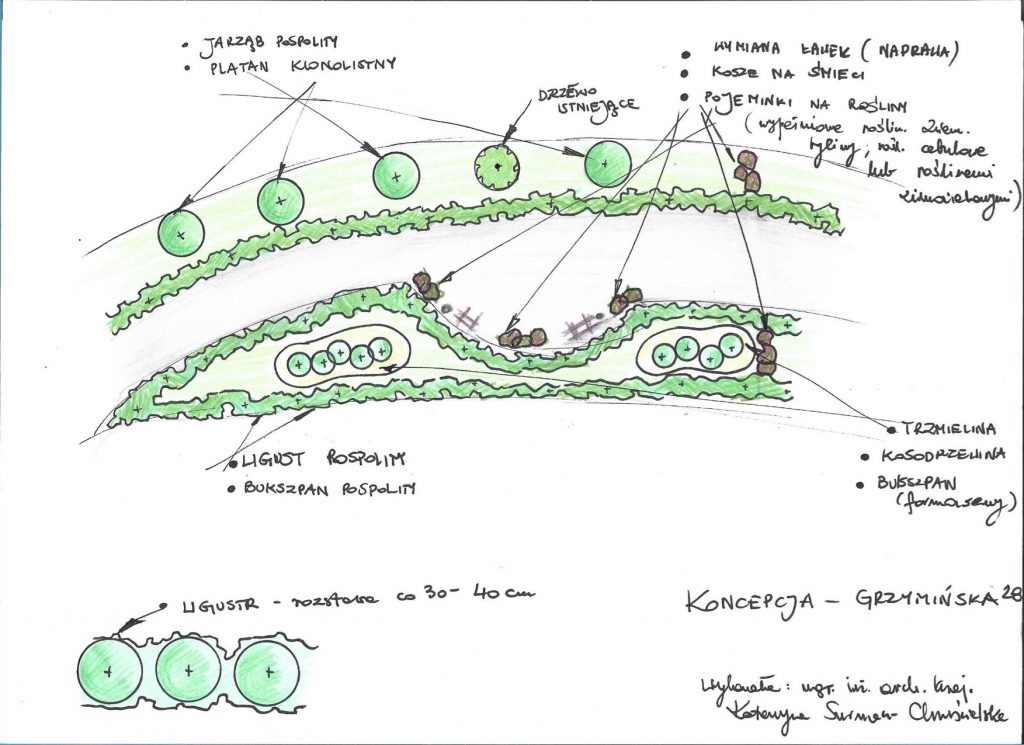 JARZĄB POSPOLITY
PLATAN KLONOLISTNY
DRZEWO
ISTNIEJĄCE
WYMIANA ŁAWEK (NAPRAWA)
KOSZE NA ŚMIECI
POJEMINKI NA ROŚLINY
(wypełnione roślin.
byliny, rośl. cebulowe
lub roślinami
zimozielonymi)
LIGUST POSPOLITY
BUKSZPAN POSPOLITY
TRZMIELINA
KOSODRZEWINA
BUKSZPAN
(formowany)
LIGUSTR - rozstawa co 30-40cm
KONCEPCJA - GRZYMIŃSKA 28
Wykonała: mgr. inż. arch. kraj.
Katarzyna